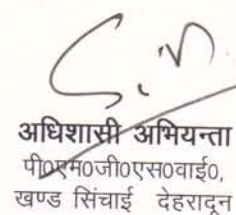 अधिशासी अभियन्ता
पी०एम०जी०एस०वाई०,
खण्ड सिंचाई देहरादून